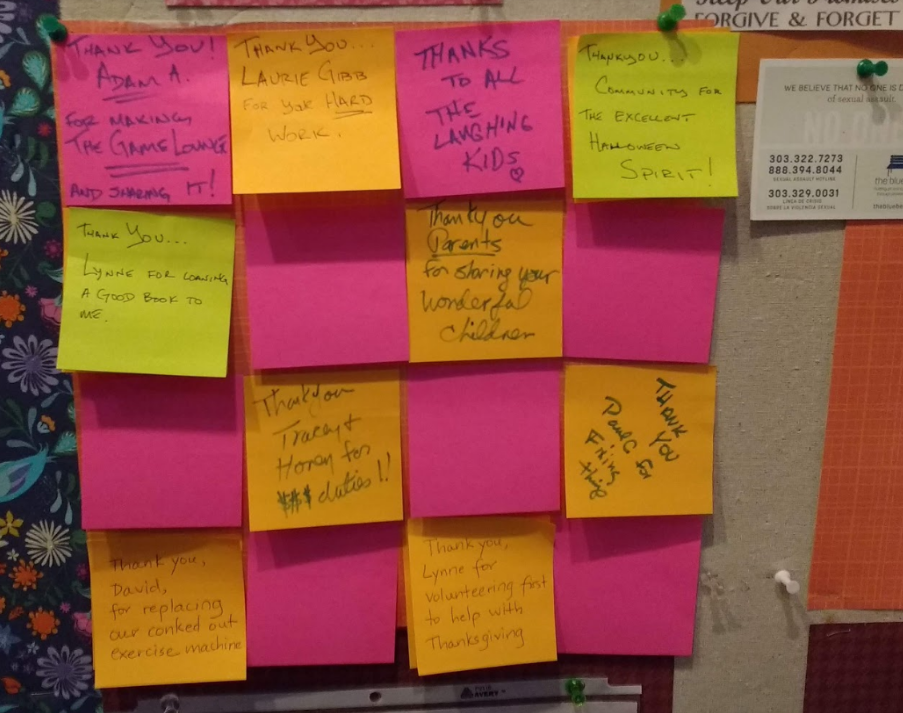 Keep Our Promises
FORGIVE & FORGET
THANK YOU!
ADAM A.
FOR MAKING
THE GAME LOUNGE
AND SHARING IT!
THANK YOU...
LAURIE GIBB
FOR YOUR HARD
WORK.
THANKS
TO ALL
THE
LAUGHING
KIDS
THANKYOU...
COMMUNITY FOR
THE EXCELLENT
HALLOWEEN
SPIRIT!
WE BELIEVE THAT NO ONE IS
of sexual assault.
NO
303.322.7273
888.394.8044
SEXUAL ASSAULT HOTLINE
303.329.0031
LÍNEA DE CRISIS
SOBRE LA VIOLENCIA SEXUAL
the blue
THANK YOU...
LYNNE FOR LOANING
A GOOD BOOK TO
ME.
Thank you
Parents
for sharing your
wonderful
children
Thank you
Tracey &
Honey for
$#$ duties!!
THANK YOU
for
Fixing
things
Thank you,
David,
for replacing
our conked out
exercise machine
Thank you,
Lynne for
volunteering first
to help with
Thanksgiving
AVERY